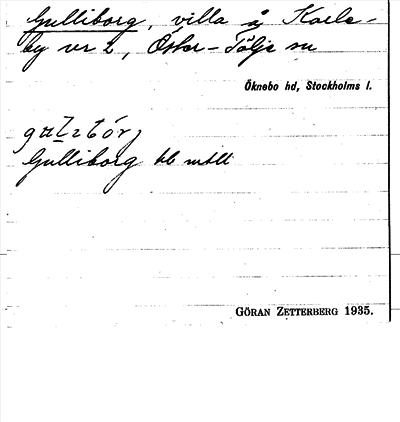 Gulliborg, villa å Karle-
by nr 2, Öster-Tälje sn
Öknebo hd, Stockholms l.
Gulliborg
GÖRAN ZETTERBERG 1935.